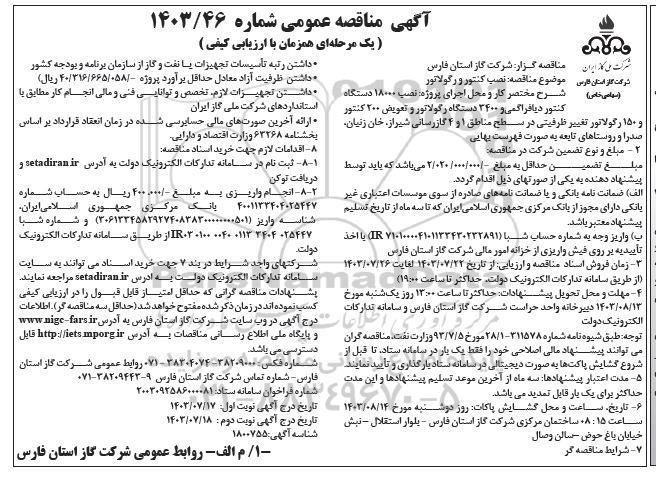 آگهی مناقصه عمومی شماره ۱۴۰۳/۴۶
( یک مرحله‌ای همزمان با ارزیابی کیفی )
شرکت ملی گاز ایران
شرکت گاز استان فارس
(سهامی خاص)
مناقصه گزار: شرکت گاز استان فارس
موضوع مناقصه: نصب کنتور و رگولاتور
شرح مختصر کار و محل اجرای پروژه: نصب ۱۸۰۰۰ دستگاه
کنتور دیافراگمی و ۳۴۰۰ دستگاه رگولاتور و تعویض ۲۰۰ کنتور
و ۱۵۰ رگولاتور تغییر ظرفیتی در سطح مناطق ۱ و ۴ گازرسانی شیراز، خان زنیان،
صدرا و روستاهای تابعه به صورت فهرست بهایی
۲- مبلغ و نوع تضمین شرکت در مناقصه:
مبلغ تضمین حداقل به مبلغ -/۲/۰۲۰/۰۰۰/۰۰۰ می‌باشد که باید توسط
پیشنهاد دهنده به یکی از صورتهای ذیل اقدام گردد.
الف) ضمانت نامه بانکی و یا ضمانت نامه‌های صادره از سوی موسسات اعتباری غیر
بانکی دارای مجوز از بانک مرکزی جمهوری اسلامی ایران که تا سه ماه از تاریخ تسلیم
پیشنهاد معتبر باشد.
ب) واریز وجه به شماره حساب شبا (IR ۷۱۰۱۰۰۰۰۴۱۰۱۱۱۳۳۴۳۰۲۳۲۸۹۱) با اخذ
تأییدیه بر روی فیش واریزی از خزانه امور مالی شرکت گاز استان فارس
۳- زمان فروش اسناد مناقصه و ارزیابی: از تاریخ ۱۴۰۳/۰۷/۲۲ لغایت ۱۴۰۳/۰۷/۲۶
(از طریق سامانه تدارکات الکترونیک دولت، حداکثر تا ساعت ۱۹:۰۰)
۴- مهلت و محل تحویل پیشنهادات: حداکثر تا ساعت ۱۳:۰۰ روز یکشنبه مورخ
۱۴۰۳/۰۸/۱۳ دبیرخانه واحد حراست شرکت گاز استان فارس و سامانه تدارکات
الکترونیک دولت
توجه: طبق شیوه نامه شماره ۲۸/۱-۳۱۱۵۷۸ مورخ ۹۳/۷/۵ وزارت نفت، مناقصه گران
می توانند پیشنهاد مالی اصلاحی خود را فقط یک بار در سامانه ستاد، تا قبل از
شروع گشایش پاکت‌ها به صورت دیجیتالی در سامانه ستاد بارگذاری و تأیید نمایند.
۵- مدت اعتبار پیشنهادها: سه ماه از آخرین موعد تسلیم پیشنهادها و این مدت
حداکثر برای یک بار قابل تمدید می باشد.
۶- تاریخ، ساعت و محل گشایش پاکات: روز دوشنبه مورخ ۱۴۰۳/۰۸/۱۴
ساعت ۰۸:۱۵ ساختمان مرکزی شرکت گاز استان فارس - بلوار استقلال - نبش
خیابان باغ حوض - سالن وصال
۷- شرایط مناقصه گر
• داشتن رتبه تأسیسات تجهیزات یا نفت و گاز از سازمان برنامه و بودجه کشور
• داشتن ظرفیت آزاد معادل حداقل برآورد پروژه -/۴۰/۳۱۶/۶۶۵/۰۵۸ ریال)
• داشتن تجهیزات لازم، تخصص و توانایی فنی و مالی انجام کار مطابق با
استانداردهای شرکت ملی گاز ایران
• ارائه آخرین صورت‌های مالی حسابرسی شده در زمان انعقاد قرارداد بر اساس
بخشنامه ۶۳۲۶۸ وزارت اقتصاد و دارایی.
۸- اقدامات لازم جهت خرید اسناد مناقصه:
۸-۱- ثبت نام در سامانه تدارکات الکترونیک دولت به آدرس setadiran.ir و
دریافت توکن
۸-۲- انجام واریزی به مبلغ -/۴۰۰.۰۰۰ ریال به حساب شماره
۴۰۰۱۱۱۳۴۰۴۰۲۵۴۴۷ بانک مرکزی جمهوری اسلامی ایران،
شناسه واریز (۳۰۶۱۳۳۴۵۸۲۹۲۷۴۰۸۳۸۳۰۰۰۰۰۰۰۵۰۱) و شماره شبا
IR۰۳۰۱۰۰ ۰۰۴۰ ۰۱۱۱ ۳۴۰۴ ۰۲۵۴۴۷ از طریق سامانه تدارکات الکترونیک
دولت.
شرکتهای واجد شرایط در بند ۷ جهت خرید اسناد می توانند به سایت
سامانه تدارکات الکترونیک دولت به آدرس setadiran.ir مراجعه نمایند.
پیشنهادات مناقصه گرانی که حداقل امتیاز قابل قبول را در ارزیابی کیفی
کسب نموده اند در زمان ذکر شده مفتوح خواهد شد.(حداقل سه مناقصه گر). اطلاعات
درج آگهی در وب سایت شرکت گاز استان فارس به آدرس www.nigc-fars.ir
و پایگاه ملی اطلاع رسانی مناقصات به آدرس http://iets.mporg.ir قابل
دسترسی می باشد.
شماره فکس: ۳۸۲۰۹۰۰۰-۳۸۲۰۴۰۷۴-۰۷۱ روابط عمومی شرکت گاز استان
فارس- شماره تماس شرکت گاز استان فارس ۹-۳۸۲۰۹۴۴۳-۰۷۱
شماره فراخوان سامانه ستاد: ۲۰۰۳۰۹۲۵۸۶۰۰۰۰۸۱
تاریخ درج آگهی نوبت اول: ۱۴۰۳/۰۷/۱۷
تاریخ درج آگهی نوبت دوم: ۱۴۰۳/۰۷/۱۸
شناسه آگهی: ۱۸۰۰۷۵۵
۱/ م الف- روابط عمومی شرکت گاز استان فارس